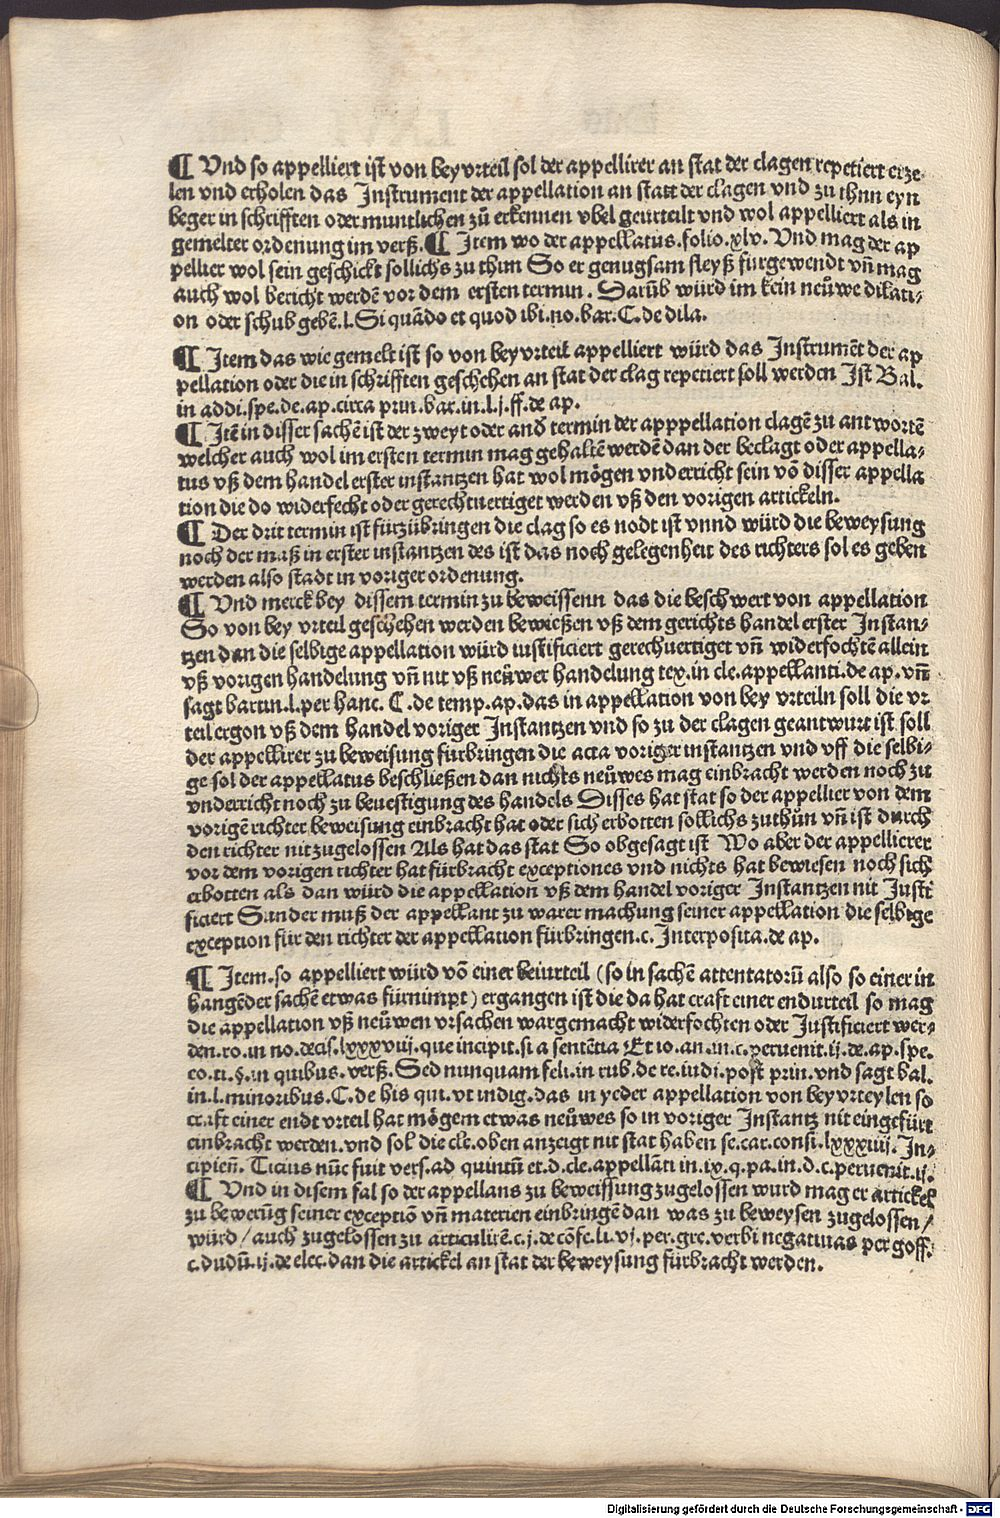 ¶ Vnd so appelliert ist von bey vrteil sol der appellirer an stat der clagen repetiert erze⸗
len vnd erholen das Instrument der appellation an statt der clagen vnd zu thun eyn
beger in schrifften oder muntlichen zů erkennen vbel geurteilt vnd wol appelliert als in
gemelter ordenung im verß. ¶ Item wo der appellatus. folio. xlv. Vnd mag der ap
pellier wol sein geschickt sollichs zu thun So er genugsam fleyß furgewendt vñ mag
auch wol bericht werdē vor dem ersten termin. Darūb würd im kein neůwe dilati⸗
on oder schub gebē. l. Si quādo et quod ibi. no. bar. C. de dila.
¶ Item das wie gemelt ist so von bey vrteil appelliert würd das Instrumēt der ap
pellation oder die in schrifften geschehen an stat der clag repetiert soll werden Ist Bal.
in addi. spe. de. ap. circa prin. bar. in. l. j. ff. de ap.
¶ Itē in disser sachē ist der zweyt oder and̄ termin der apppellation clagē zu antwortē
welcher auch wol im ersten termin mag gehaltē werdē dan der beclagt oder appella⸗
tus vß dem handel erster instantzen hat wol mögen vnderricht sein vō disser appella
tion die do widerfecht oder gerechtuertiget werden vß den vorigen artickeln.
¶ Der drit termin ist fürzübringen die clag so es nodt ist vnnd würd die beweysung
noch der maß in erster instantzen des ist das noch gelegenheit des richters sol es geben
werden also stadt in voriger ordenung.
¶ Vnd merck bey dissem termin zu beweissenn das die beschwert von appellation
So von bey vrteil geschehen werden bewießen vß dem gerichts handel erster Instan⸗
tzen dan die selbige appellation würd iustificiert gerechuertiget vñ widerfochtē allein
vß vorigen handelung vñ nit vß neůwer handelung tex. in cle. appellanti. de ap. vñ
sagt bartin. l. per hanc. C. de temp. ap. das in appellation von bey vrteiln soll die vr
teil ergon vß dem handel voriger Instantzen vnd so zu der clagen geantwurt ist soll
der appellirer zu beweisung fürbringen die acta voriger instantzen vnd vff die selbi⸗
ge sol der appellatus beschließen dan nichts neůwes mag einbracht werden noch zu
vnderricht noch zu beuestigung des handels Disses hat stat so der appellier von dem
vorigē richter beweisung einbracht hat oder sich erbotten sollichs zuthůn vñ ist durch
den richter nit zugelossen Als hat das stat So obgesagt ist Wo aber der appellierer
vor dem vorigen richter hat fürbracht exceptiones vnd nichts hat bewiesen noch sich
erbotten als dan würd die appellation vß dem handel voriger Instantzen nit Justi
ficiert Sunder muß der appellant zu warer machung seiner appellation die selbige
exception für den richter der appellation fürbringen. c. Interposita. de ap.
¶ Item. so appelliert würd vō einer beiurteil (so in sachē attentatorū also so einer in
hangēder sachē etwas fürnimpt) ergangen ist die da hat craft einer endurteil so mag
die appellation vß neůwen vrsachen wargemacht widerfochten oder Justificiert wer⸗
den. ro. in no. decis. lxxxviij. que incipit. si a sentētia Et io. an. in. c. peruenit. ij. de. ap. spe.
co. ti. §. in quibus. verß. Sed nunquam feli. in rub. de re. iudi. post prin. vnd sagt bal.
in. l. minoribus. C. de his qui. vt indig. das in yeder appellation von bey vrteylen so
craft einer endt vrteil hat mögem etwas neůwes so in voriger Instantz nit eingefürt
einbracht werden. vnd sol die cle. oben anzeigt nit stat haben se. car. consi. lxxxiiij. In⸗
cipieñ. Ticius nūc fuit vers. ad quintū et. d. cle. appellāti in. ix. q. pa. in. d. c. peruenit. ij.
¶ Vnd in disem fal so der appellans zu beweissung zugelossen wurd mag er artickel
zu bewerūg seiner exceptiō vñ materien einbringē dan was zu beweysen zugelossen /
würd / auch zugelossen zu articulirē. c. j. de cōfe. li. vj. per. gre. verbi negatiuas per goff.
c. dudū. ij. de elec. dan die artickel an stat der beweysung fürbracht werden.
Digitalisierung gefördert durch die Deutsche Forschungsgemeinschaft - DFG